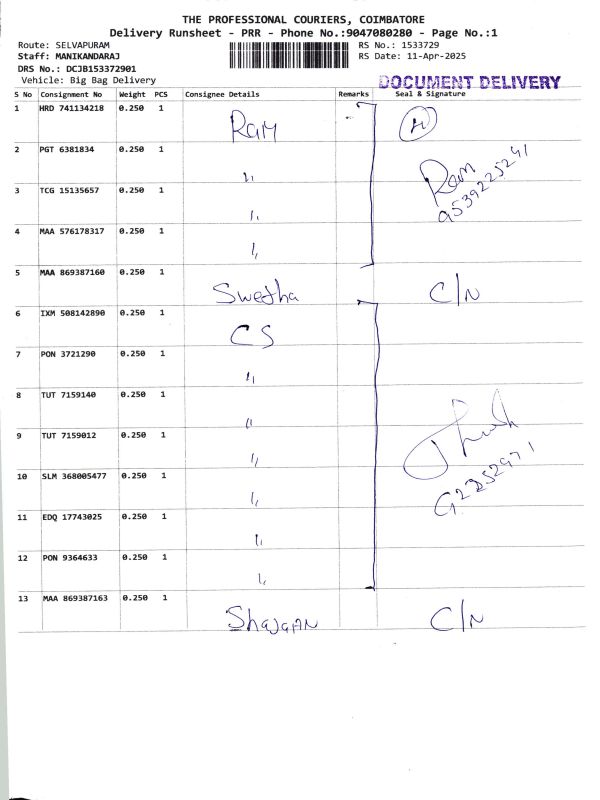 THE PROFESSIONAL COURIERS, COIMBATORE
Delivery Runsheet - PRR - Phone No.:9047080280 - Page No.:1
Route: SELVAPURAM
RS No.: 1533729
Staff: MANIKANDARAJ
RS Date: 11-Apr-2025
DRS No.: DCJB153372901
Vehicle: Big Bag Delivery
DOCUMENT DELIVERY
S No Consignment No Weight PCS Consignee Details Remarks Seal & Signature
1 HRD 741134218 0.250 1 Ram
2 PGT 6381834 0.250 1 "
Ram
9539225241
3 TCG 15135657 0.250 1 "
4 MAA 576178317 0.250 1 "
5 MAA 869387160 0.250 1 Swetha C/N
6 IXM 508142890 0.250 1 CS
7 PON 3721290 0.250 1 "
8 TUT 7159140 0.250 1 "
9 TUT 7159012 0.250 1 "
10 SLM 368005477 0.250 1 "
11 EDQ 17743025 0.250 1 "
12 PON 9364633 0.250 1 "
13 MAA 869387163 0.250 1 Shajaan C/N